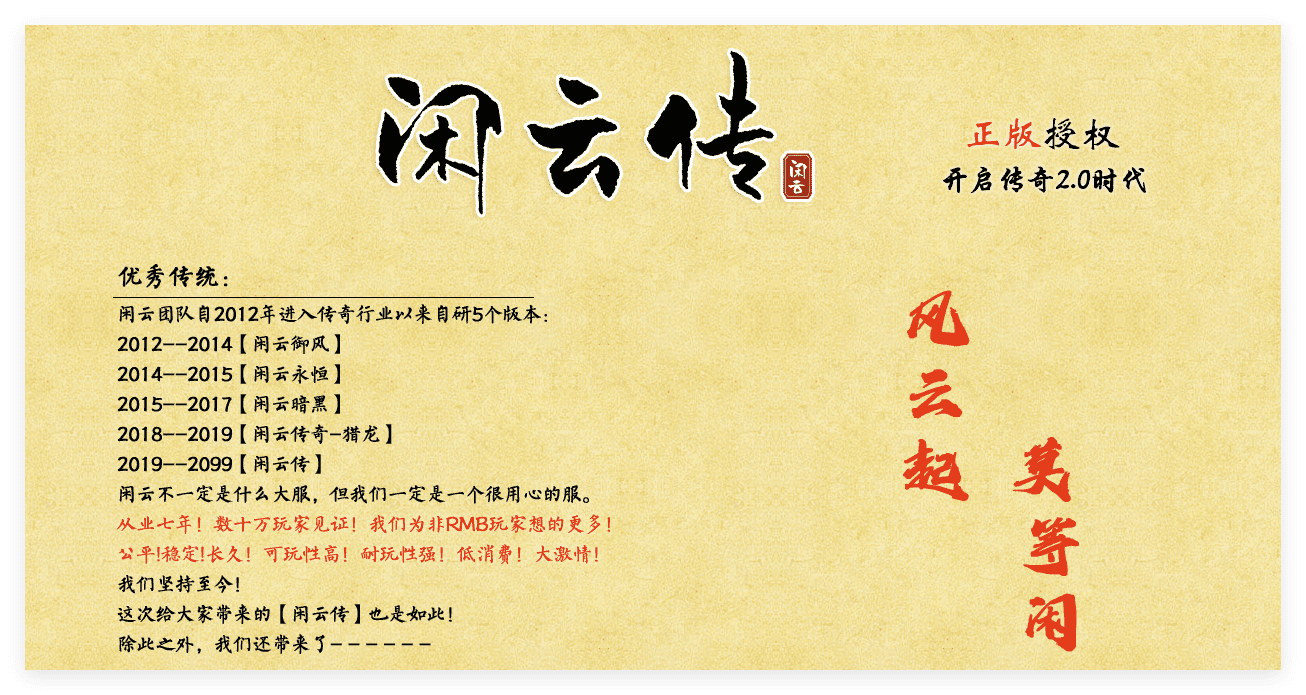 闲云传
闲云
正版授权
开启传奇2.0时代
优秀传统：
闲云团队自2012年进入传奇行业以来自研5个版本：
2012--2014【闲云御风】
2014--2015【闲云永恒】
2015--2017【闲云暗黑】
2018--2019【闲云传奇-猎龙】
2019--2099【闲云传】
闲云不一定是什么大服，但我们一定是一个很用心的服。
从业七年！数十万玩家见证！我们为非RMB玩家想的更多！
公平!稳定!长久！可玩性高！耐玩性强！低消费！大激情！
我们坚持至今！
这次给大家带来的【闲云传】也是如此！
除此之外，我们还带来了------
风云起
莫等闲